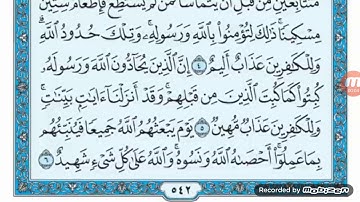 مُتَتَابِعَيْنِ مِن قَبْلِ أَن يَتَمَآسَّا فَمَن لَّمْ يَسْتَطِعْ فَإِطْعَامُ سِتِّينَ
مِسْكِينًا ذَٰلِكَ لِتُؤْمِنُوا۟ بِٱللَّهِ وَرَسُولِهِۦ وَتِلْكَ حُدُودُ ٱللَّهِ
وَلِلْكَٰفِرِينَ عَذَابٌ أَلِيمٌ ٤ إِنَّ ٱلَّذِينَ يُحَآدُّونَ ٱللَّهَ وَرَسُولَهُۥ
كُبِتُوا۟ كَمَا كُبِتَ ٱلَّذِينَ مِن قَبْلِهِمْ وَقَدْ أَنزَلْنَآ ءَايَٰتٍۭ بَيِّنَٰتٍ
وَلِلْكَٰفِرِينَ عَذَابٌ مُّهِينٌ ٥ يَوْمَ يَبْعَثُهُمُ ٱللَّهُ جَمِيعًا فَيُنَبِّئُهُم
بِمَا عَمِلُوٓا۟ أَحْصَىٰهُ ٱللَّهُ وَنَسُوهُ وَٱللَّهُ عَلَىٰ كُلِّ شَىْءٍ شَهِيدٌ ٦
٥٤٢
Recorded by
Mobizen